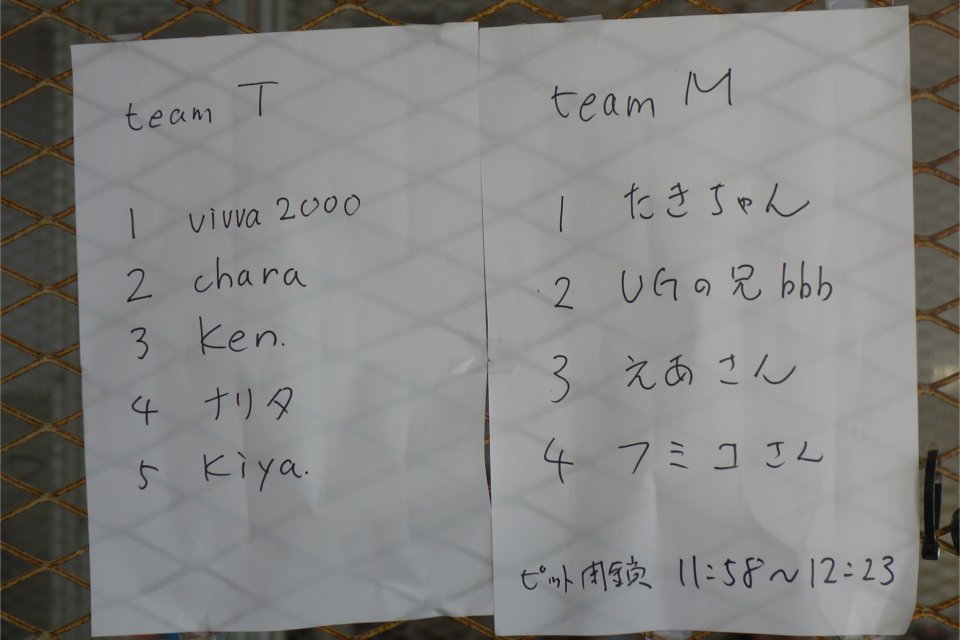 team T
1 vivva 2000
2 chara
3 Ken.
4 ナリタ
5 Kiya.
team M
1 たきちゃん
2 UGの兄bbb
3 えあさん
4 フミコさん
ピット閉鎖 11:58〜12:23